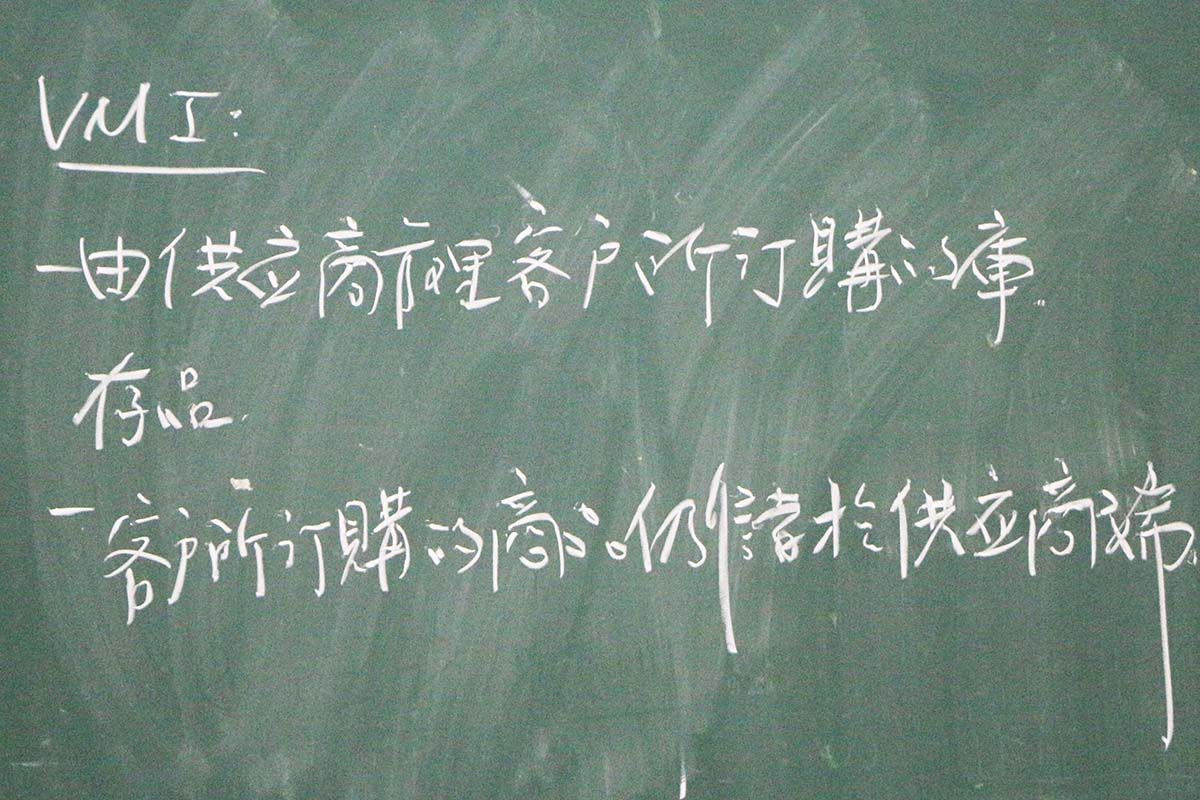 VMI:
-由供应商管理客戶所訂購的庫
存品.
-客戶所訂購的商品仍儲於供应商端